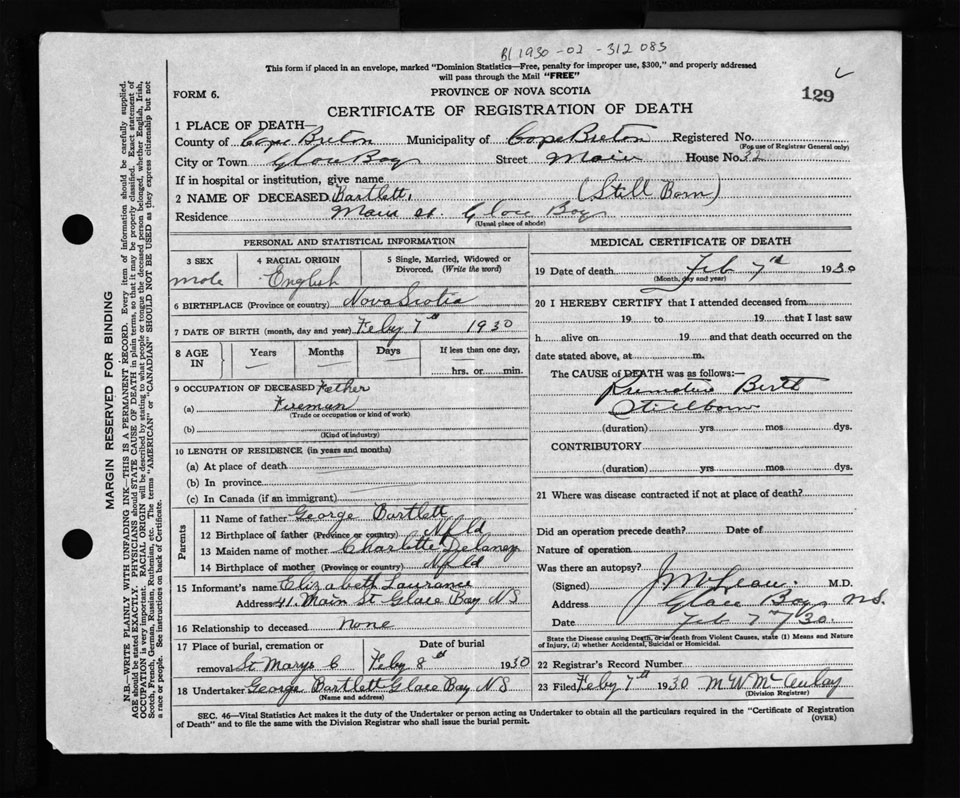 B1 1930-02-312083
This form if placed in an envelope, marked "Dominion Statistics—Free, penalty for improper use, $300," and properly addressed
will pass through the Mail "FREE"
FORM 6.
PROVINCE OF NOVA SCOTIA
129
CERTIFICATE OF REGISTRATION OF DEATH
1 PLACE OF DEATH
County of Cape Breton Municipality of Cape Breton Registered No.
(For use of Registrar General only)
City or Town Glace Bay Street Main House No. 32
If in hospital or institution, give name
2 NAME OF DECEASED Bartlett, (Still Born)
Residence Main st. Glace Bay
(Usual place of abode)
PERSONAL AND STATISTICAL INFORMATION
3 SEX
male
4 RACIAL ORIGIN
English
5 Single, Married, Widowed or
Divorced, (Write the word)
6 BIRTHPLACE (Province or country) Nova Scotia
7 DATE OF BIRTH (month, day and year) Feby 7th 1930
8 AGE IN
Years
Months
Days
If less than one day,
hrs. or min.
9 OCCUPATION OF DECEASED Father
(a) Fireman
(Trade or occupation or kind of work)
(b)
(Kind of industry)
10 LENGTH OF RESIDENCE (in years and months)
(a) At place of death
(b) In province
(c) In Canada (if an immigrant)
Parents
11 Name of father George Bartlett
12 Birthplace of father (Province or country) Nfld
13 Maiden name of mother Charlotte Delaney
14 Birthplace of mother (Province or country) Nfld
15 Informant's name Elizabeth Laurance
Address 41. Main St Glace Bay NS
16 Relationship to deceased none
17 Place of burial, cremation or
removal St Marys C
Date of burial
Feby 8th 1930
18 Undertaker George Bartlett Glace Bay NS
(Name and address)
MEDICAL CERTIFICATE OF DEATH
19 Date of death Feb 7th 1930
(Month, day and year)
20 I HEREBY CERTIFY that I attended deceased from
19 to 19 that I last saw
h alive on 19 and that death occurred on the
date stated above, at m.
The CAUSE of DEATH was as follows:
Premature Birth
Stillborn
(duration) yrs mos dys.
CONTRIBUTORY
(duration) yrs mos dys.
21 Where was disease contracted if not at place of death?
Did an operation precede death? Date of
Nature of operation
Was there an autopsy?
(Signed) M.D.
Address Glace Bay NS.
Date Feb 7th/30.
State the Disease causing Death, or in death from Violent Causes, state (1) Means and Nature
of Injury, (2) whether Accidental, Suicidal or Homicidal.
22 Registrar's Record Number
23 Filed Feby 7th 1930 M W McAulay
(Division Registrar)
SEC. 46—Vital Statistics Act makes it the duty of the Undertaker or person acting as Undertaker to obtain all the particulars required in the "Certificate of Registration
of Death" and to file the same with the Division Registrar who shall issue the burial permit.
(OVER)
MARGIN RESERVED FOR BINDING
N.B.—WRITE PLAINLY WITH UNFADING INK—THIS IS A PERMANENT RECORD. Every item of information should be carefully supplied.
AGE should be stated EXACTLY. PHYSICIANS should STATE CAUSE OF DEATH in plain terms, so that it may be properly classified. Exact statement of
OCCUPATION is very important. RACIAL ORIGIN will be described by stating to what people or tongue the deceased person belonged, whether English, Irish,
Scotch, French, German, Russian, Ruthenian, etc. The terms "AMERICAN" or "CANADIAN" SHOULD NOT BE USED as they express citizenship but not
a race or people. See instructions on back of Certificate.